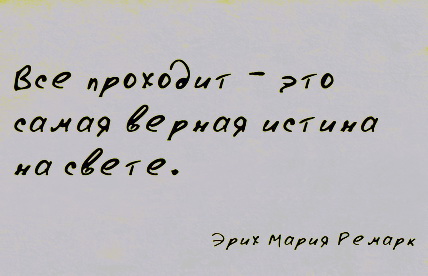 Все проходит - это
самая верная истина
на свете.
Эрих Мария Ремарк